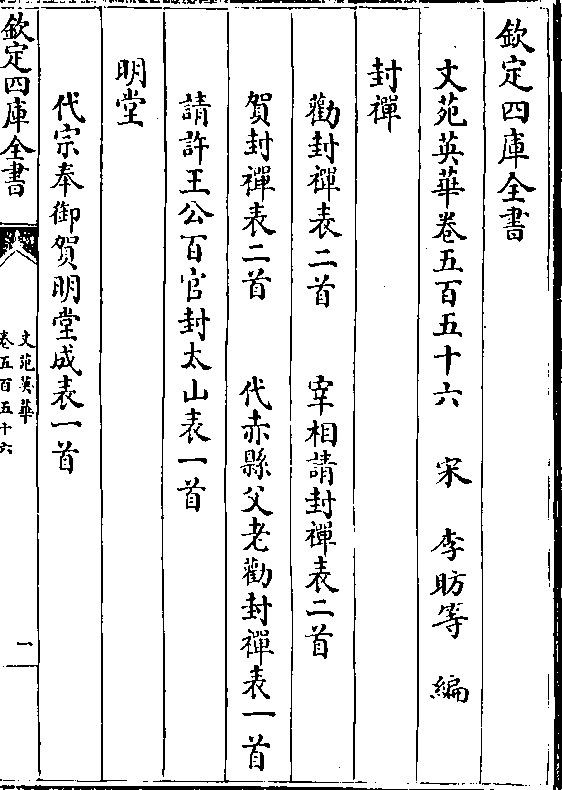 欽定四庫全書
文苑英華卷五百五十六　宋　李昉等　編
封禪
勸封禪表二首　宰相請封禪表二首
賀封禪表二首　代赤縣父老勸封禪表一首
請許王公百官封太山表一首
明堂
代宗奉御賀明堂成表一首
欽定四庫全書
文苑英華
卷五百五十六
一